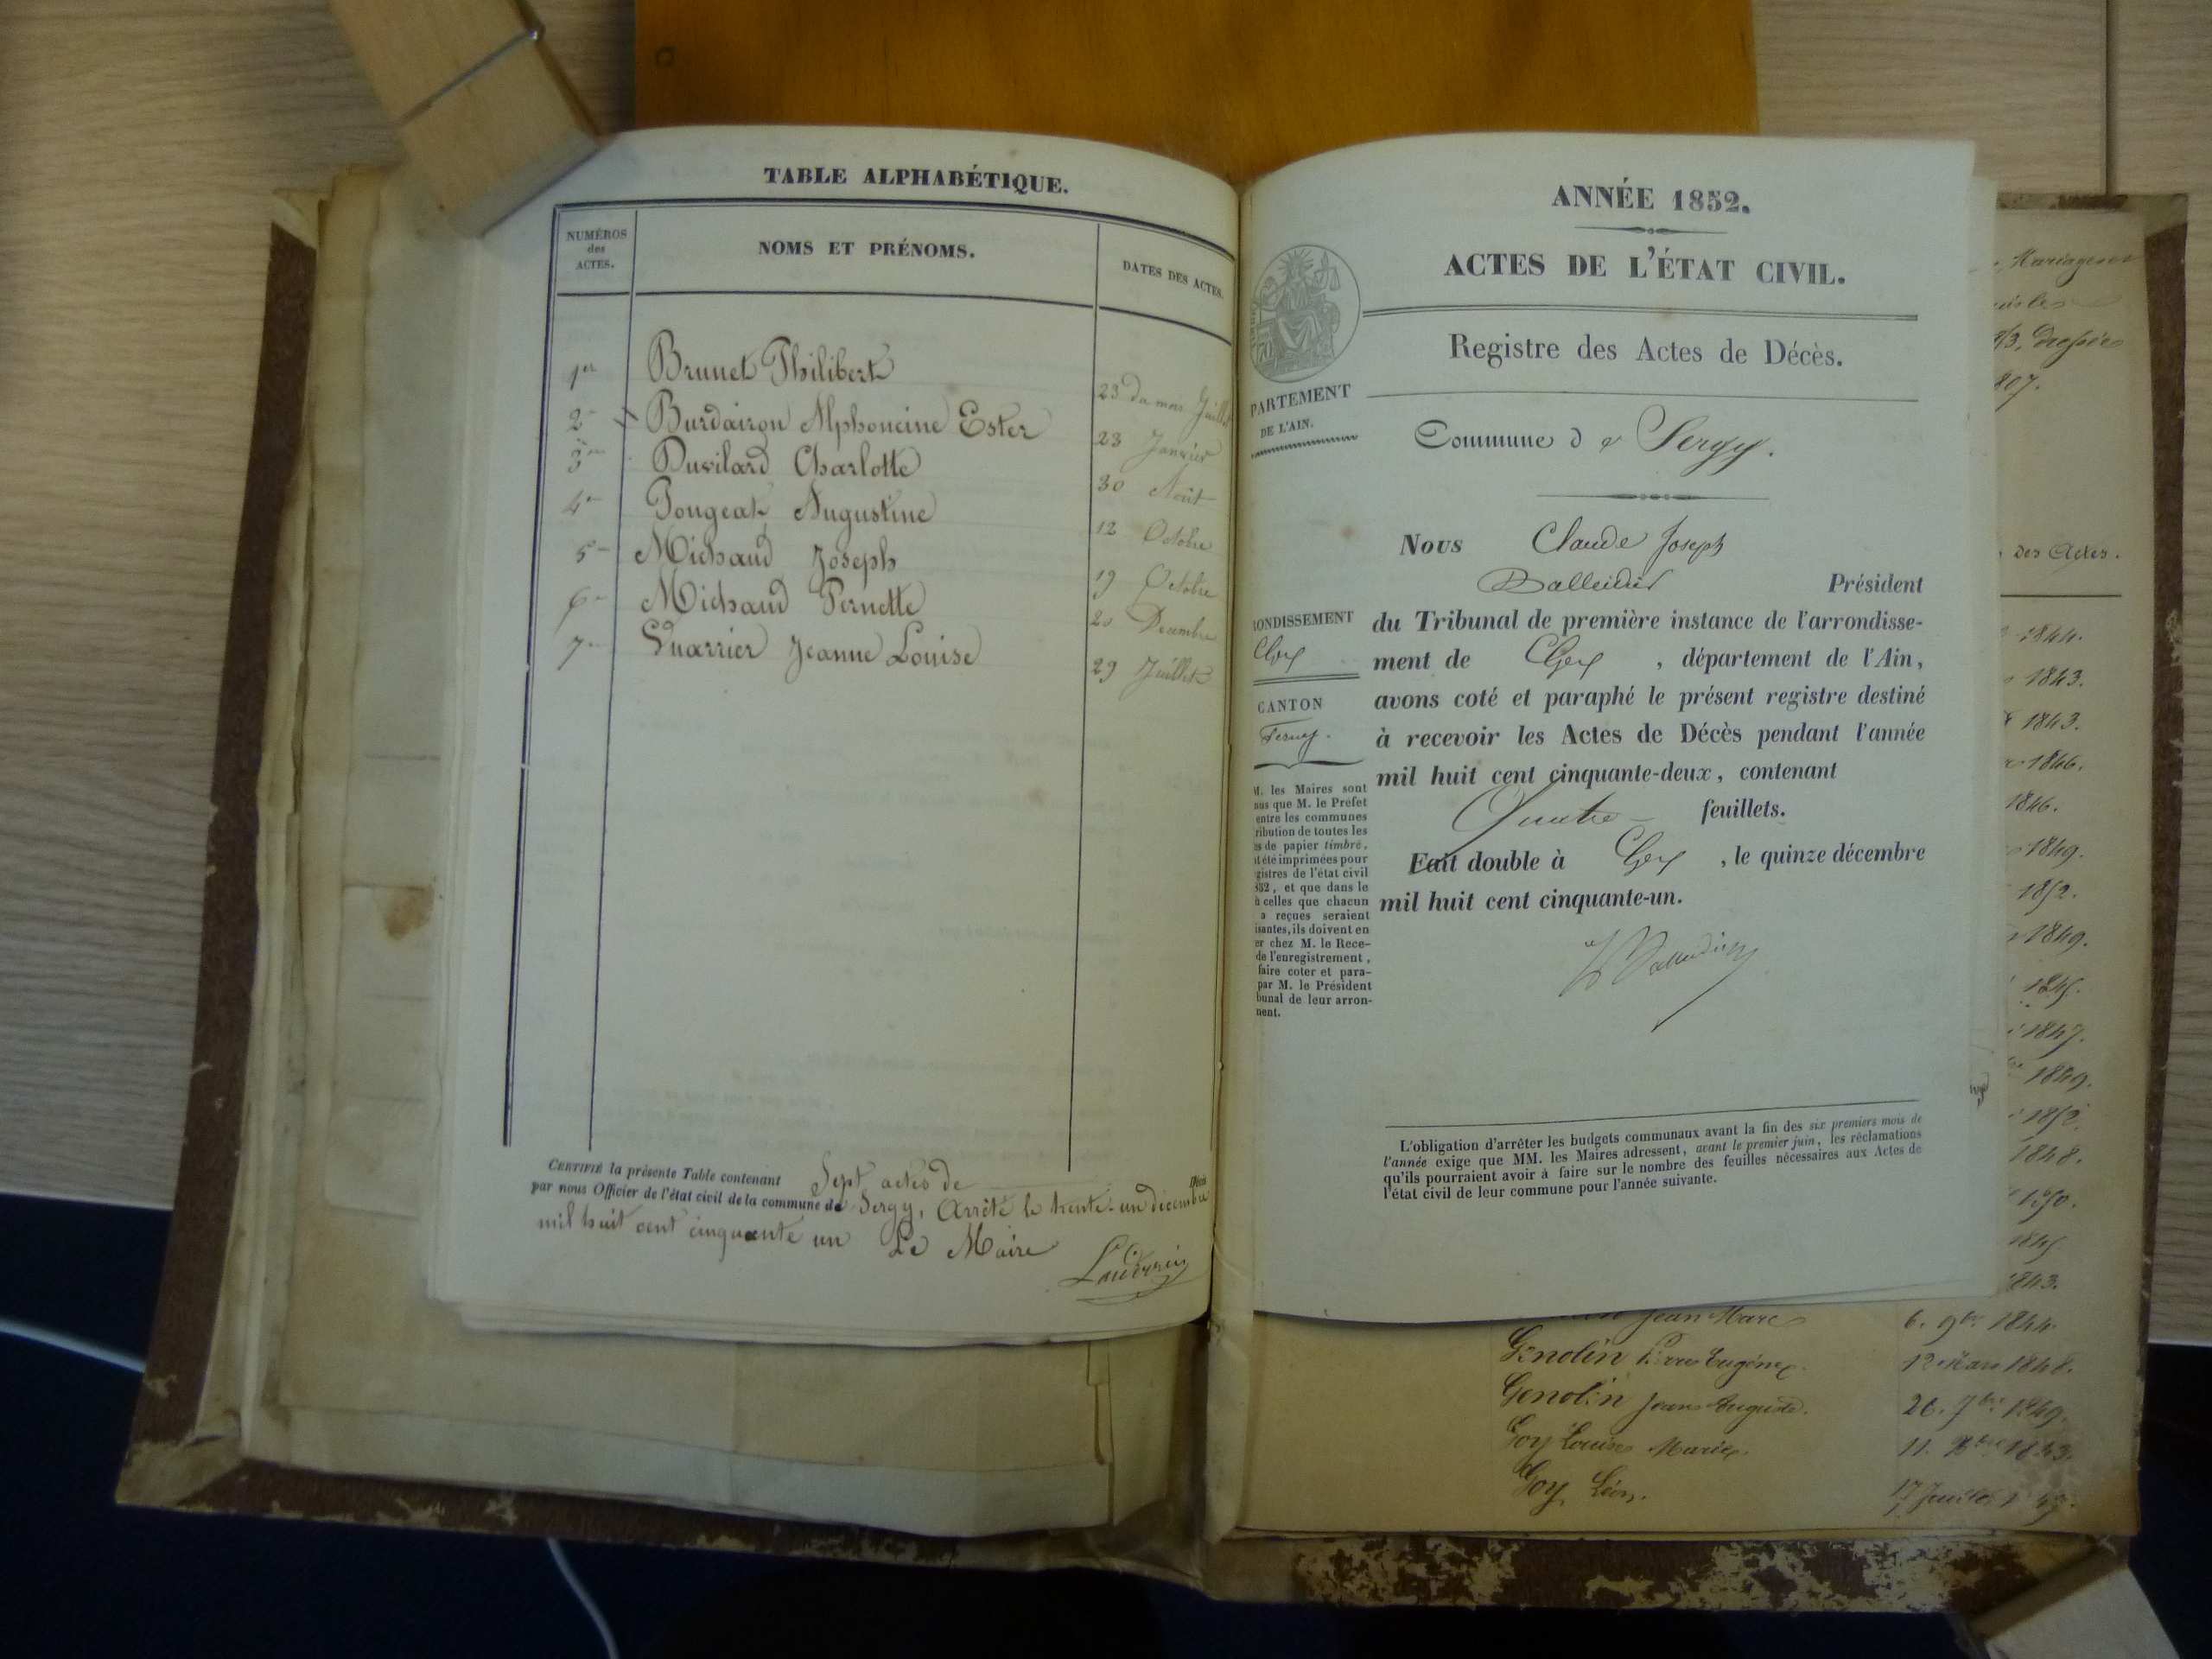 TABLE ALPHABÉTIQUE.
NUMÉROS
des
ACTES.
NOMS ET PRÉNOMS.
DATES DES ACTES.
1er Brunet Philibert 23 du mois Juillet
2 Burdairon Alphoncine Ester 23 Janvier
3 Duvilard Charlotte 30 Août
4 Pongeat Augustine 12 Octobre
5 Michaud Joseph 19 Octobre
6 Michaud Pernette 20 Decembre
7 Quarrier Jeanne Louise 29 Juillet
CERTIFIÉ la présente Table contenant Sept actes de Décès
par nous Officier de l'état civil de la commune de Sergy, Arrêté le trente-un décembre
mil huit cent cinquante un Le Maire
ANNÉE 1852.
ACTES DE L'ÉTAT CIVIL.
Registre des Actes de Décès.
PARTEMENT
DE L'AIN.
Commune d e Sergy.
Nous Claude Joseph
Président
ONDISSEMENT
Gex
du Tribunal de première instance de l'arrondisse-
ment de Gex , département de l'Ain,
avons coté et paraphé le présent registre destiné
à recevoir les Actes de Décès pendant l'année
mil huit cent cinquante-deux, contenant
Quatre feuillets.
Fait double à Gex , le quinze décembre
mil huit cent cinquante-un.
CANTON
Ferney.
M. les Maires sont
nus que M. le Préfet
entre les communes
ribution de toutes les
es de papier timbré,
t été imprimées pour
gistres de l'état civil
852, et que dans le
ù celles que chacun
a reçues seraient
isantes, ils doivent en
er chez M. le Rece-
de l'enregistrement,
faire coter et para-
par M. le Président
bunal de leur arron-
nent.
L'obligation d'arrêter les budgets communaux avant la fin des six premiers mois de
l'année exige que MM. les Maires adressent, avant le premier juin, les réclamations
qu'ils pourraient avoir à faire sur le nombre des feuilles nécessaires aux Actes de
l'état civil de leur commune pour l'année suivante.
Mariages
807.
des Actes.
1844.
1843.
1843.
1846.
1846.
1849.
1852.
1849.
1845.
1847.
1849.
1852.
1848.
1850.
1845
1843.
Jean Marc 6. 9bre 1844.
Genolin Pierre Eugène. 12 Mars 1848.
Genolin Jean Auguste. 26. 7bre 1849.
Goy Louise Marie. 11. 1843.
Goy Léon. 17 Juillet